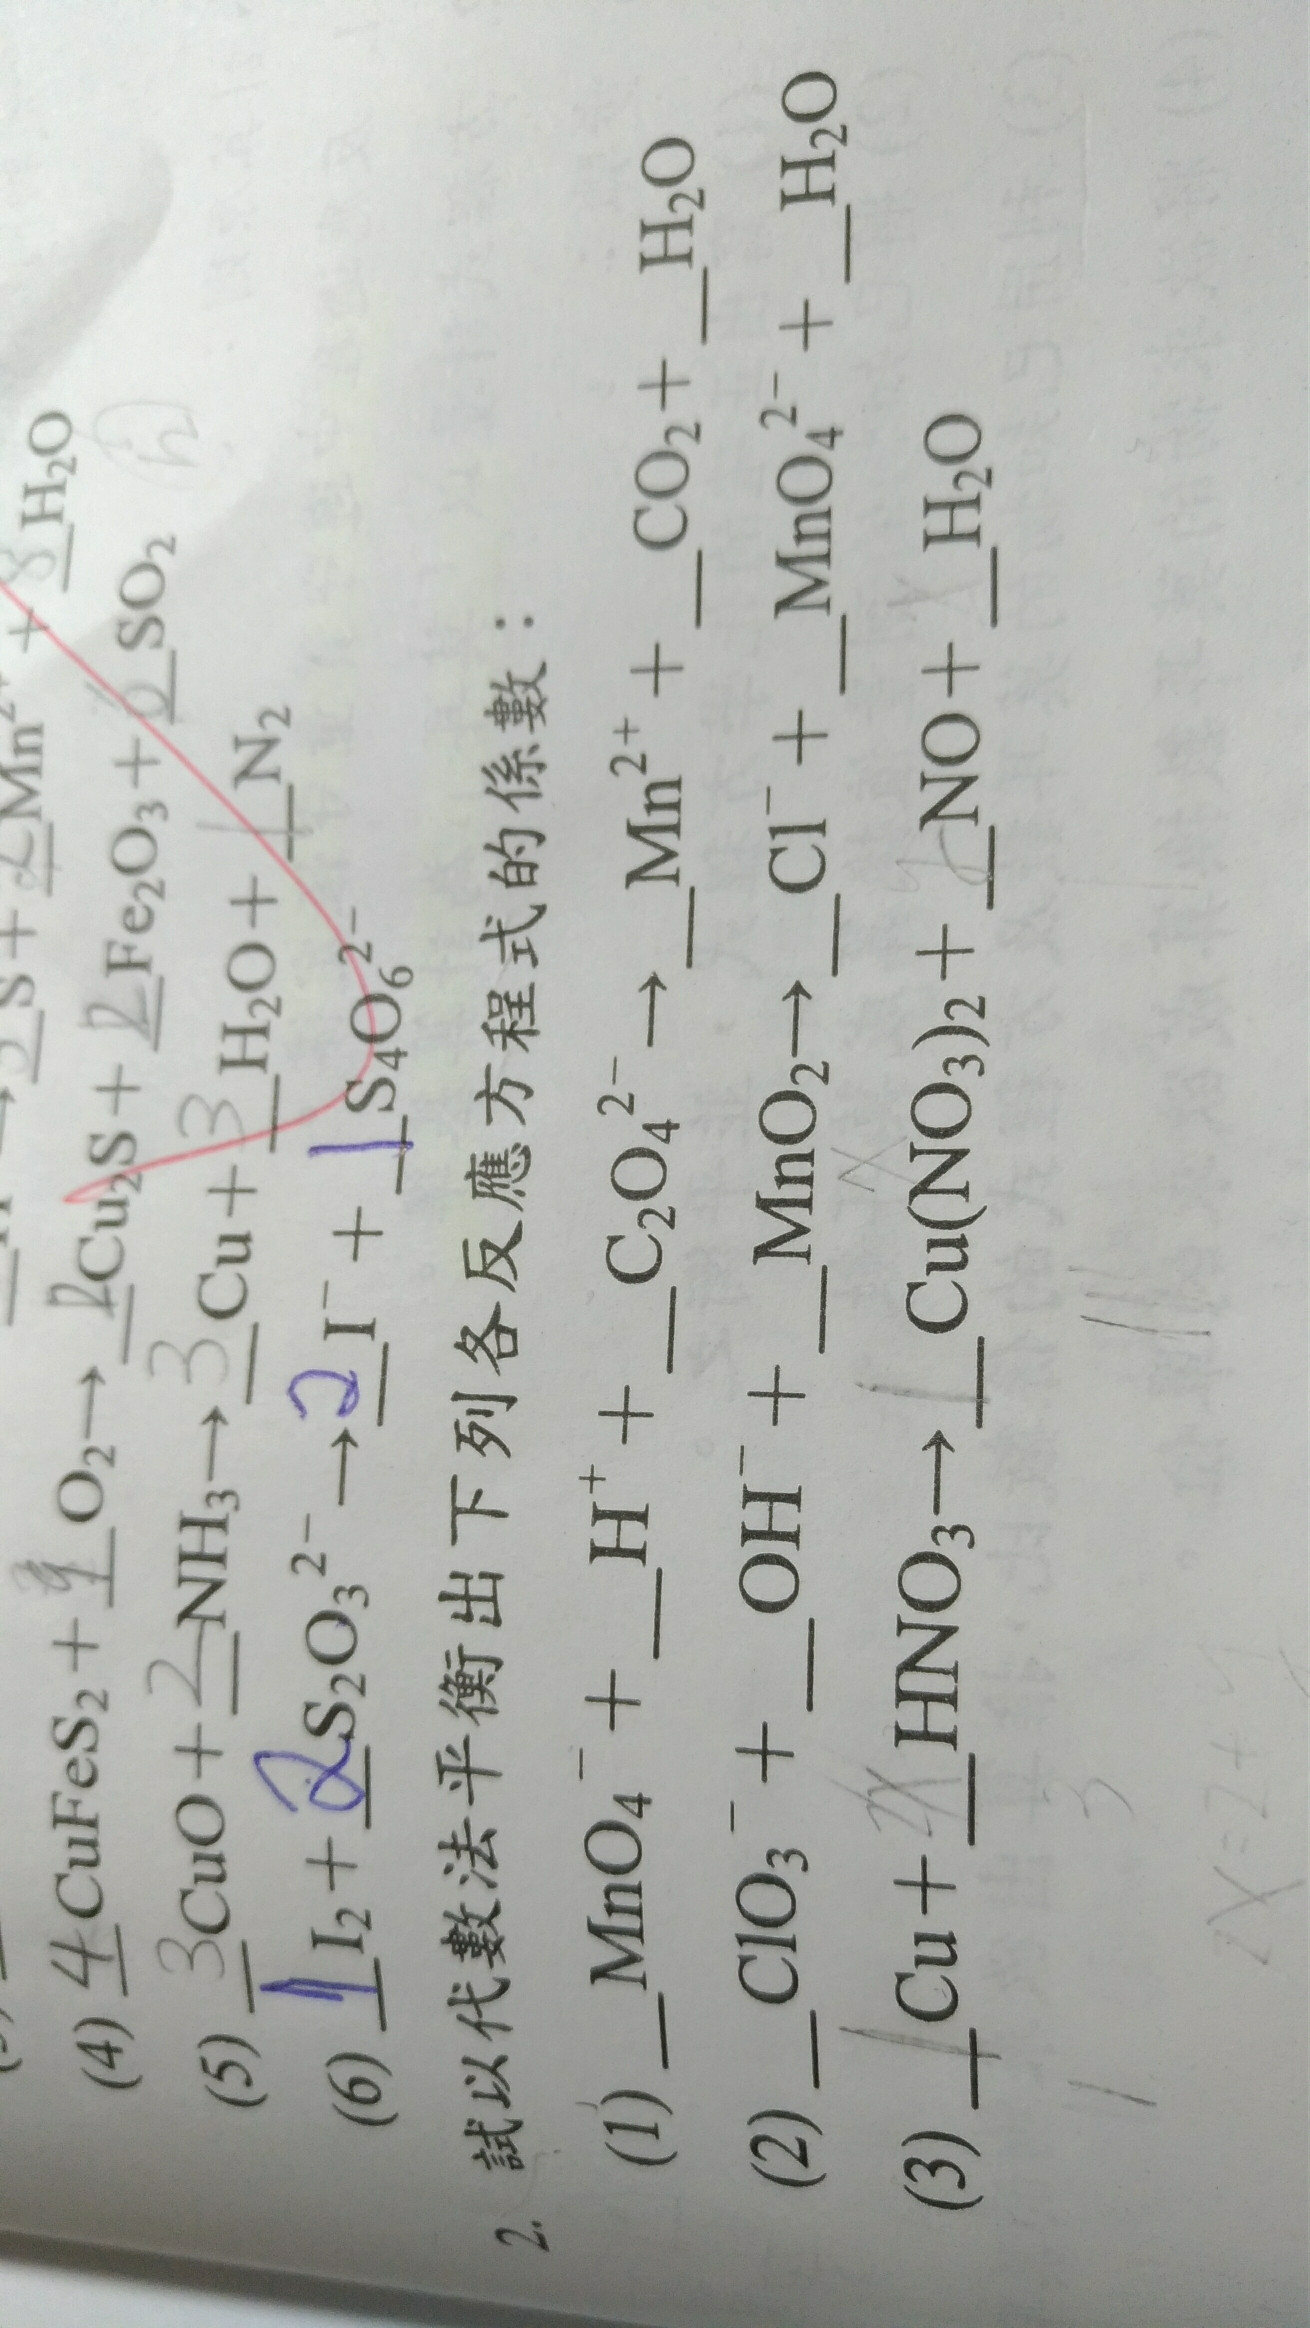 S + 2Mn²⁺ + 8H₂O
(4) 4CuFeS₂ + 9O₂→2Cu₂S + 2Fe₂O₃ + 6SO₂
(5) 3CuO + 2NH₃→3Cu + 3H₂O + 1N₂
(6) 1I₂ + 2S₂O₃²⁻→2I⁻ + 1S₄O₆²⁻
2. 試以代數法平衡出下列各反應方程式的係數：
(1) _MnO₄⁻ + _H⁺ + _C₂O₄²⁻→_Mn²⁺ + _CO₂ + _H₂O
(2) _ClO₃⁻ + _OH⁻ + _MnO₂→_Cl⁻ + _MnO₄²⁻ + _H₂O
(3) 1Cu + _HNO₃→1Cu(NO₃)₂ + _NO + _H₂O